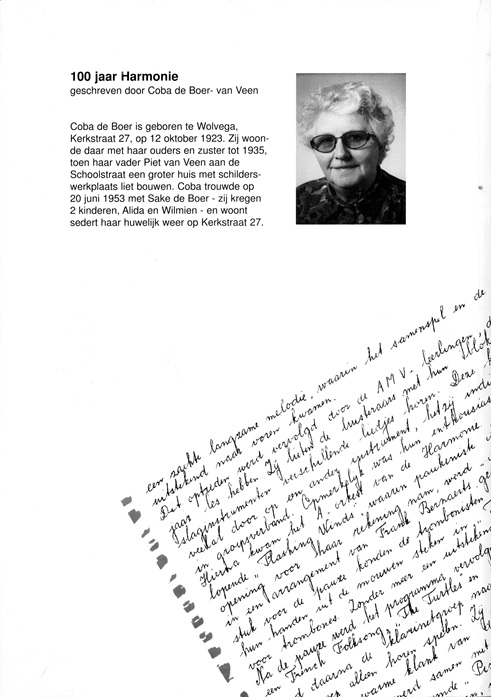 100 jaar Harmonie
geschreven door Coba de Boer- van Veen
Coba de Boer is geboren te Wolvega,
Kerkstraat 27, op 12 oktober 1923. Zij woon-
de daar met haar ouders en zuster tot 1935,
toen haar vader Piet van Veen aan de
Schoolstraat een groter huis met schilders-
werkplaats liet bouwen. Coba trouwde op
20 juni 1953 met Sake de Boer - zij kregen
2 kinderen, Alida en Wilmien - en woont
sedert haar huwelijk weer op Kerkstraat 27.
een zachte langzame melodie, waarin het samenspel en de
uitstekend naar voren kwamen.
Dit optreden werd vervolgd door de A M V - leerlingen
jaar les hebben. Zij lieten de luisteraars met hun blok
slaginstrumenten verschillende liedjes horen. Deze
veelal door op een ander instrument, hetzij indi
in groepsverband. Opmerkelijk was hun enthousias
Hierna kwam het A-orkest van de Harmonie
lopende "Flashing Winds" waarin paukenist
opening voor haar rekening nam, werd
in een arrangement van Frank Bernaerts ge
stuk voor de pauze konden de trombonisten
hun handen uit de mouwen steken in
voor trombones. Zonder meer een uitsteken
Na de pauze werd het programma vervolg
een French Folksong, The Turtles en
daarna de klarinetgroep
alleen horen spelen. Zij
warme klank van
werd samen met